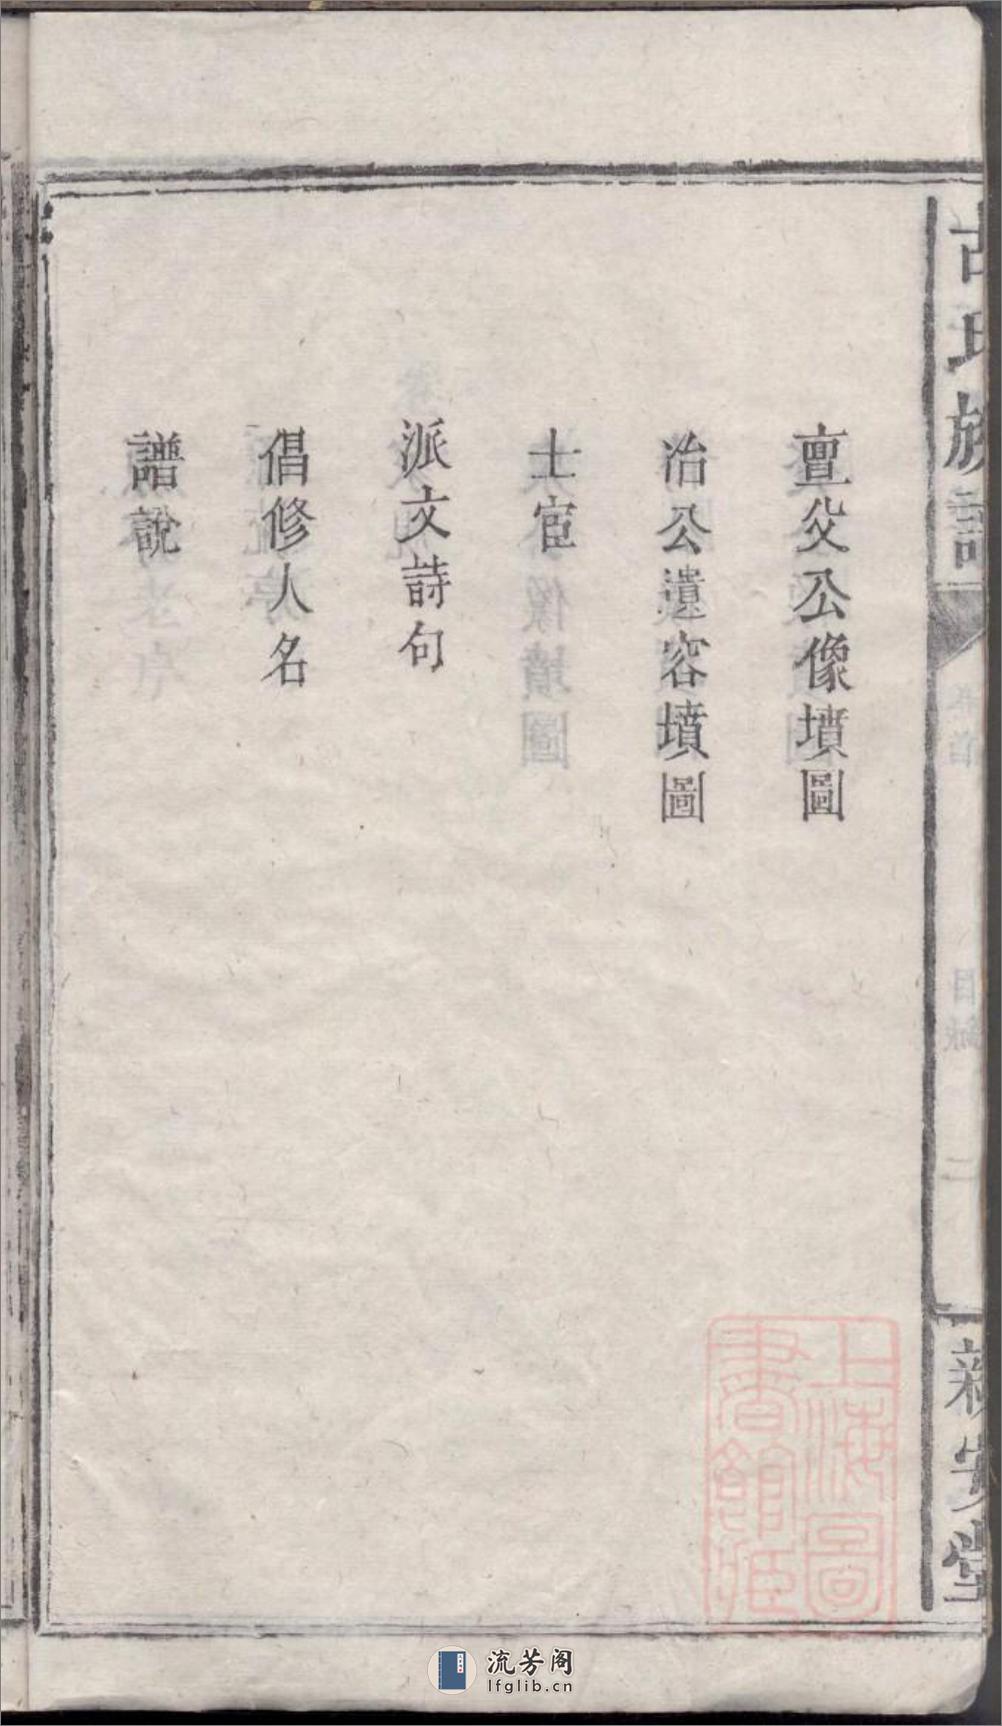 古氏族譜
卷首
目錄
二
新安堂
亶父公像墳圖
冶公遺容墳圖
士宦
派文詩句
倡修人名
譜說
上海圖
書館藏
流芳阁
lfglib.cn